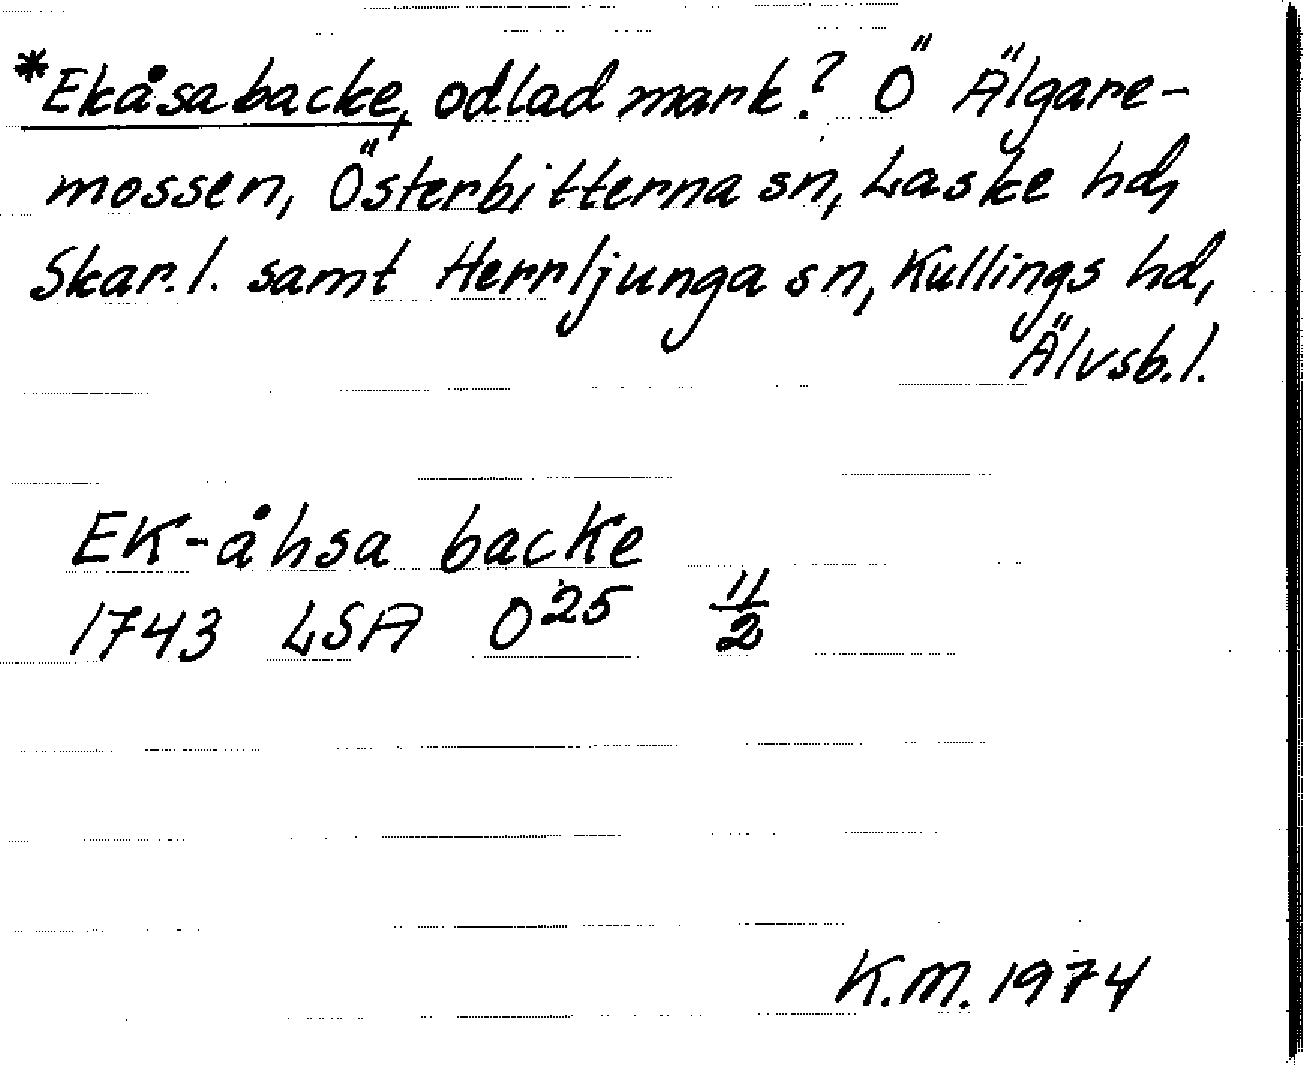 *Ekåsabacke, odlad mark? Ö Älgare-
mossen, Österbitterna sn, Laske hd,
Skar. l. samt Herrljunga sn, Kullings hd,
Älvsb. l.
EK-åhsa backe
1743 LSA O25 11/2
K.M. 1974